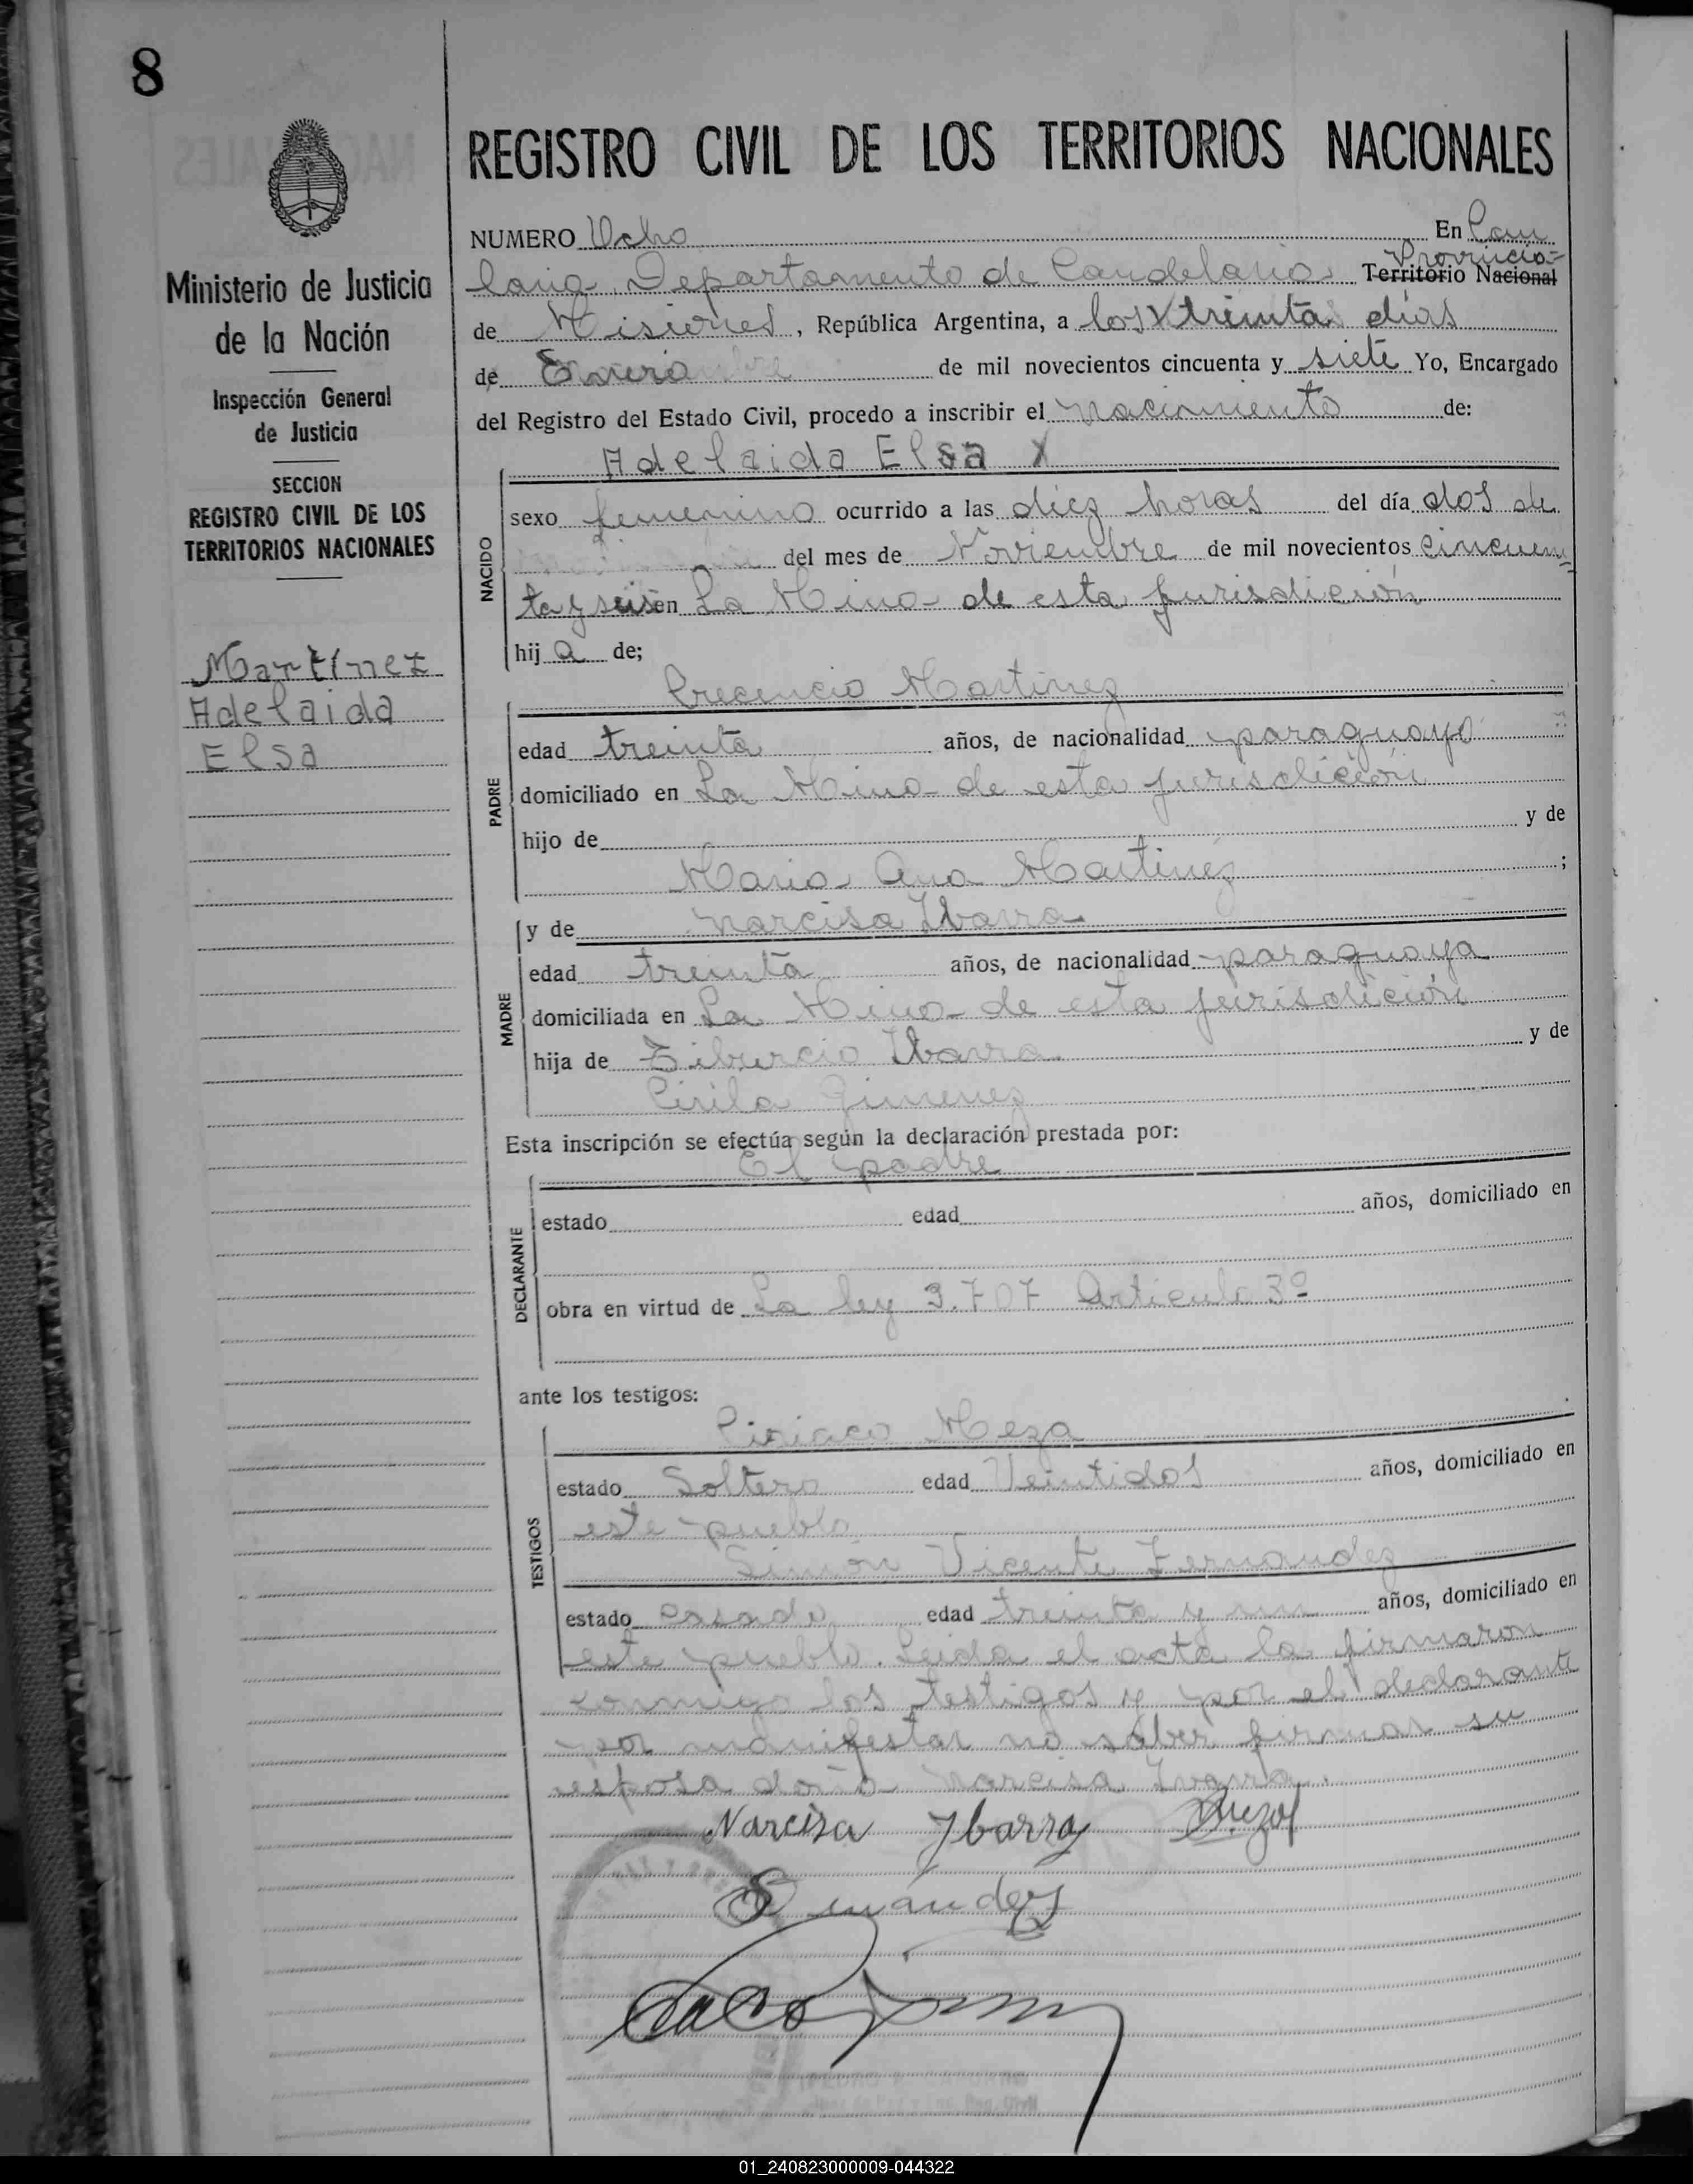 8
REGISTRO CIVIL DE LOS TERRITORIOS NACIONALES
Ministerio de Justicia
de la Nación
Inspección General
de Justicia
SECCION
REGISTRO CIVIL DE LOS
TERRITORIOS NACIONALES
Martínez
Adelaida
Elsa
NUMERO Ocho En
Departamento de Candelaria Provincia Territorio Nacional
de Misiones, República Argentina, a los treinta días
de Enero de mil novecientos cincuenta y siete Yo, Encargado
del Registro del Estado Civil, procedo a inscribir el nacimiento de:
Adelaida Elsa X
NACIDO
sexo femenino ocurrido a las diez horas del día dos de
del mes de Noviembre de mil novecientos cincuen
ta y seis en La Mina de esta jurisdicción
hij a de;
Crecencio Martinez
PADRE
edad treinta años, de nacionalidad paraguayo
domiciliado en La Mina de esta jurisdición
hijo de y de
Maria Ana Martinez ;
y de Narcisa Ibarra
MADRE
edad treinta años, de nacionalidad paraguaya
domiciliada en La Mina de esta jurisdición
hija de Tiburcio Ibarra y de
Cirila Gimenez
Esta inscripción se efectúa según la declaración prestada por:
El padre
DECLARANTE
estado edad años, domiciliado en
obra en virtud de La ley 3.707 Articulo 3º
ante los testigos:
Ciriaco Meza
TESTIGOS
estado Soltero edad Veintidos años, domiciliado en
este pueblo
Simón Vicente Fernandez
estado casado edad treinta y un años, domiciliado en
este pueblo. Leida el acta la firmaron
conmigo los testigos y por el declarante
por manifestar no saber firmar su
esposa doña Narcisa
Narcisa Ybarra
01_240823000009-044322